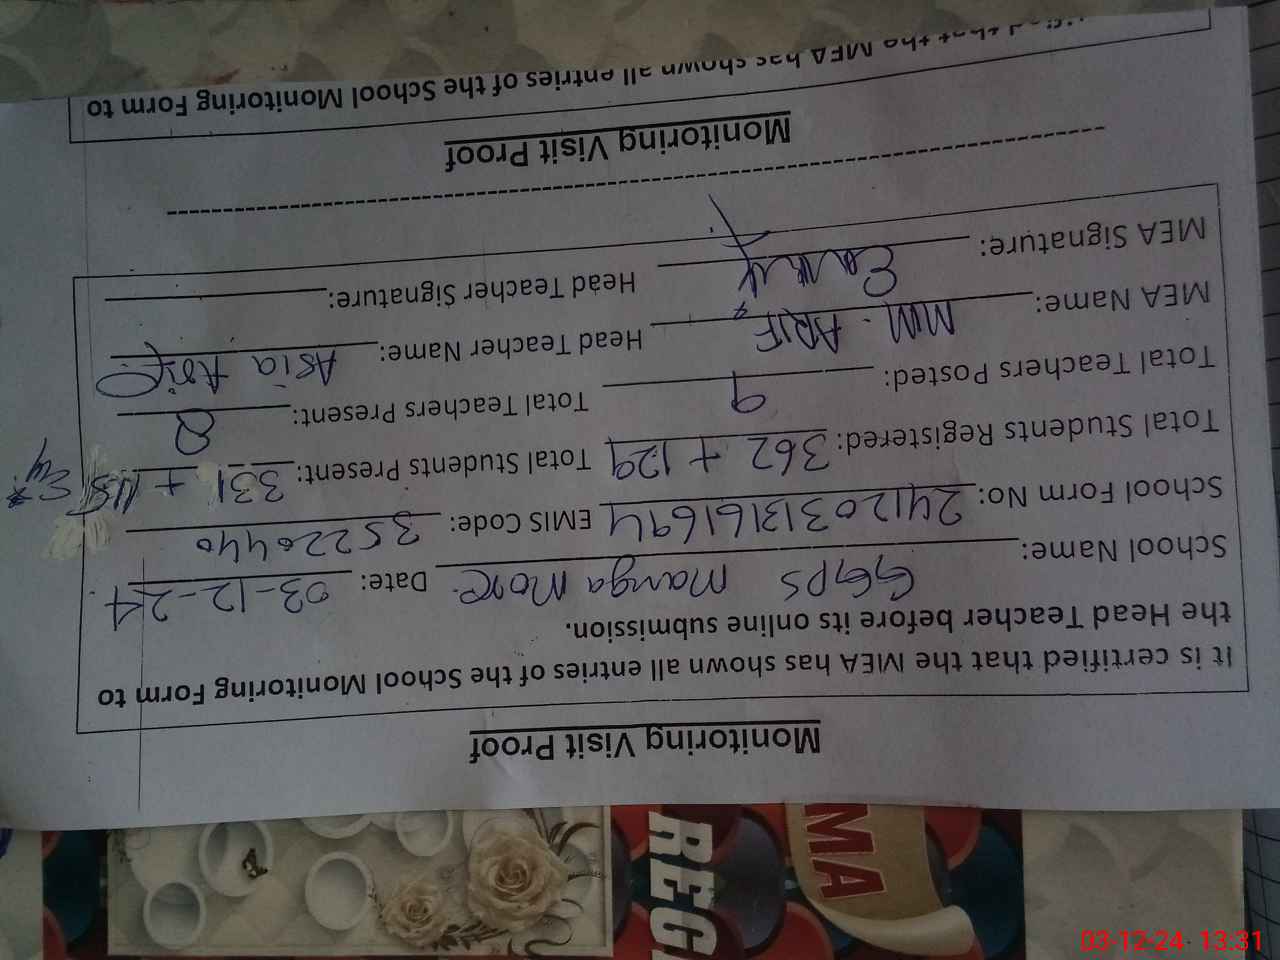 Monitoring Visit Proof
It is certified that the MEA has shown all entries of the School Monitoring Form to
the Head Teacher before its online submission.
School Name: GGPS Manga More. Date: 03-12-24.
School Form No: 241203131616194 EMIS Code: 35220440
Total Students Registered: 362 + 129 Total Students Present: 331 + 115
Total Teachers Posted: 9 Total Teachers Present: 8
MEA Name: MM. ARIF Head Teacher Name: Asia Asif
MEA Signature: Head Teacher Signature:
Monitoring Visit Proof
that the MEA has shown all entries of the School Monitoring Form to
MA
REGI
03-12-24 13:31